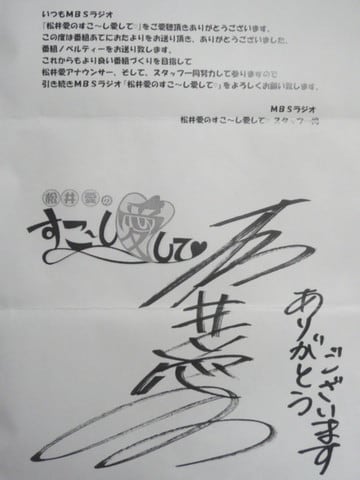 いつもMBSラジオ
「松井愛のすこ～し愛して♡」をご愛聴頂きありがとうございます。
この度は番組あてにおたよりをお送り頂き、ありがとうございました。
番組ノベルティーをお送り致します。
これからもより良い番組づくりを目指して
松井愛アナウンサー、そして、スタッフ一同努力して参りますので
引き続きMBSラジオ「松井愛のすこ～し愛して♡」をよろしくお願い致します。
MBSラジオ
松井愛のすこ～し愛して♡スタッフ一同
松井愛の
すこ～し愛して♥
松井愛
ありがとう
ございます